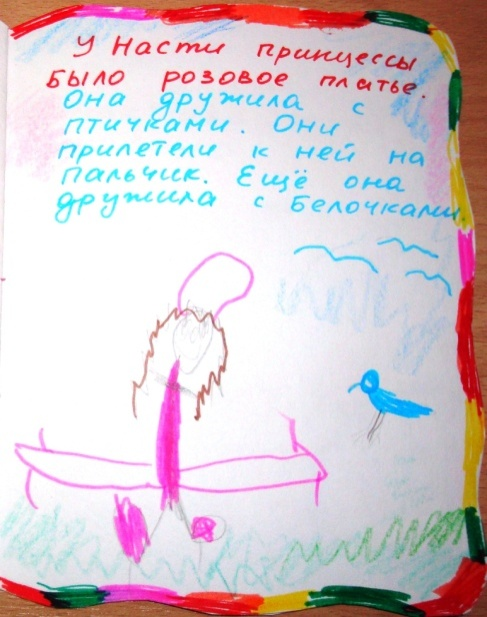 У Насти принцессы
было розовое платье.
Она дружила с
птичками. Они
прилетели к ней на
пальчик. Ещё она
дружила с белочками